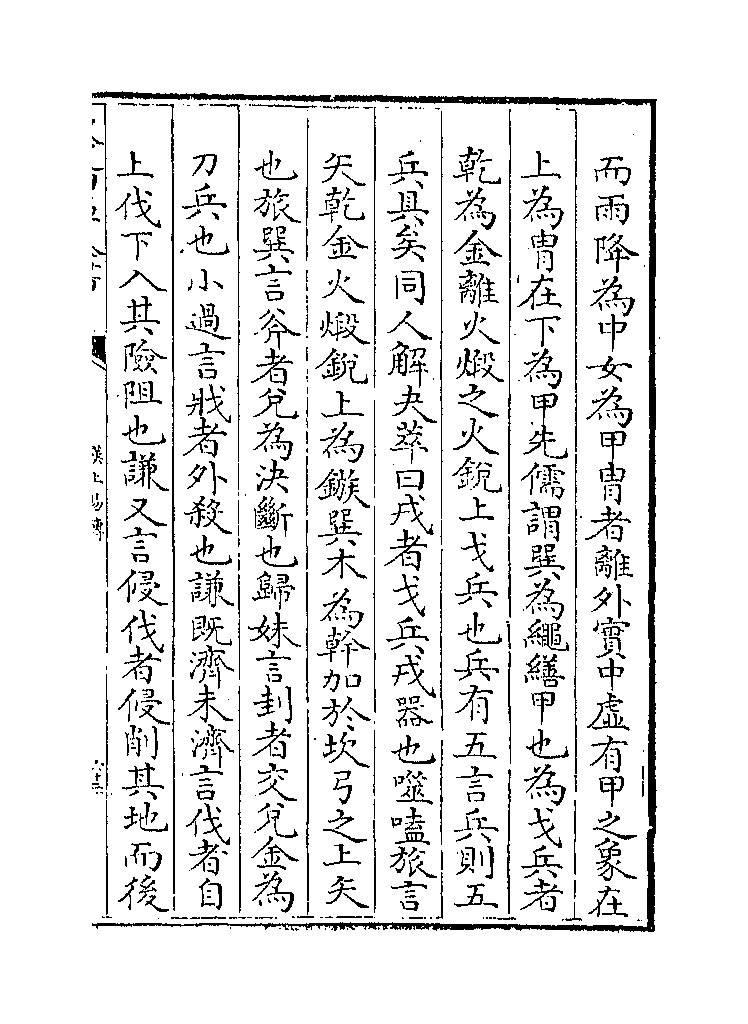 而雨降為中女為甲胄者離外實中虛有甲之象在
上為胄在下為甲先儒謂巽為繩繕甲也為戈兵者
乾為金離火煅之火銳上戈兵也兵有五言兵則五
兵具矣同人解夬萃曰戎者戈兵戎器也噬嗑旅言
矢乾金火煅銳上為鏃巽木為幹加於坎弓之上矢
也旅巽言斧者兌為決斷也歸妹言刲者交兌金為
刀兵也小過言戕者外殺也謙既濟未濟言伐者自
上伐下入其險阻也謙又言侵伐者侵削其地而後
漢上易傳